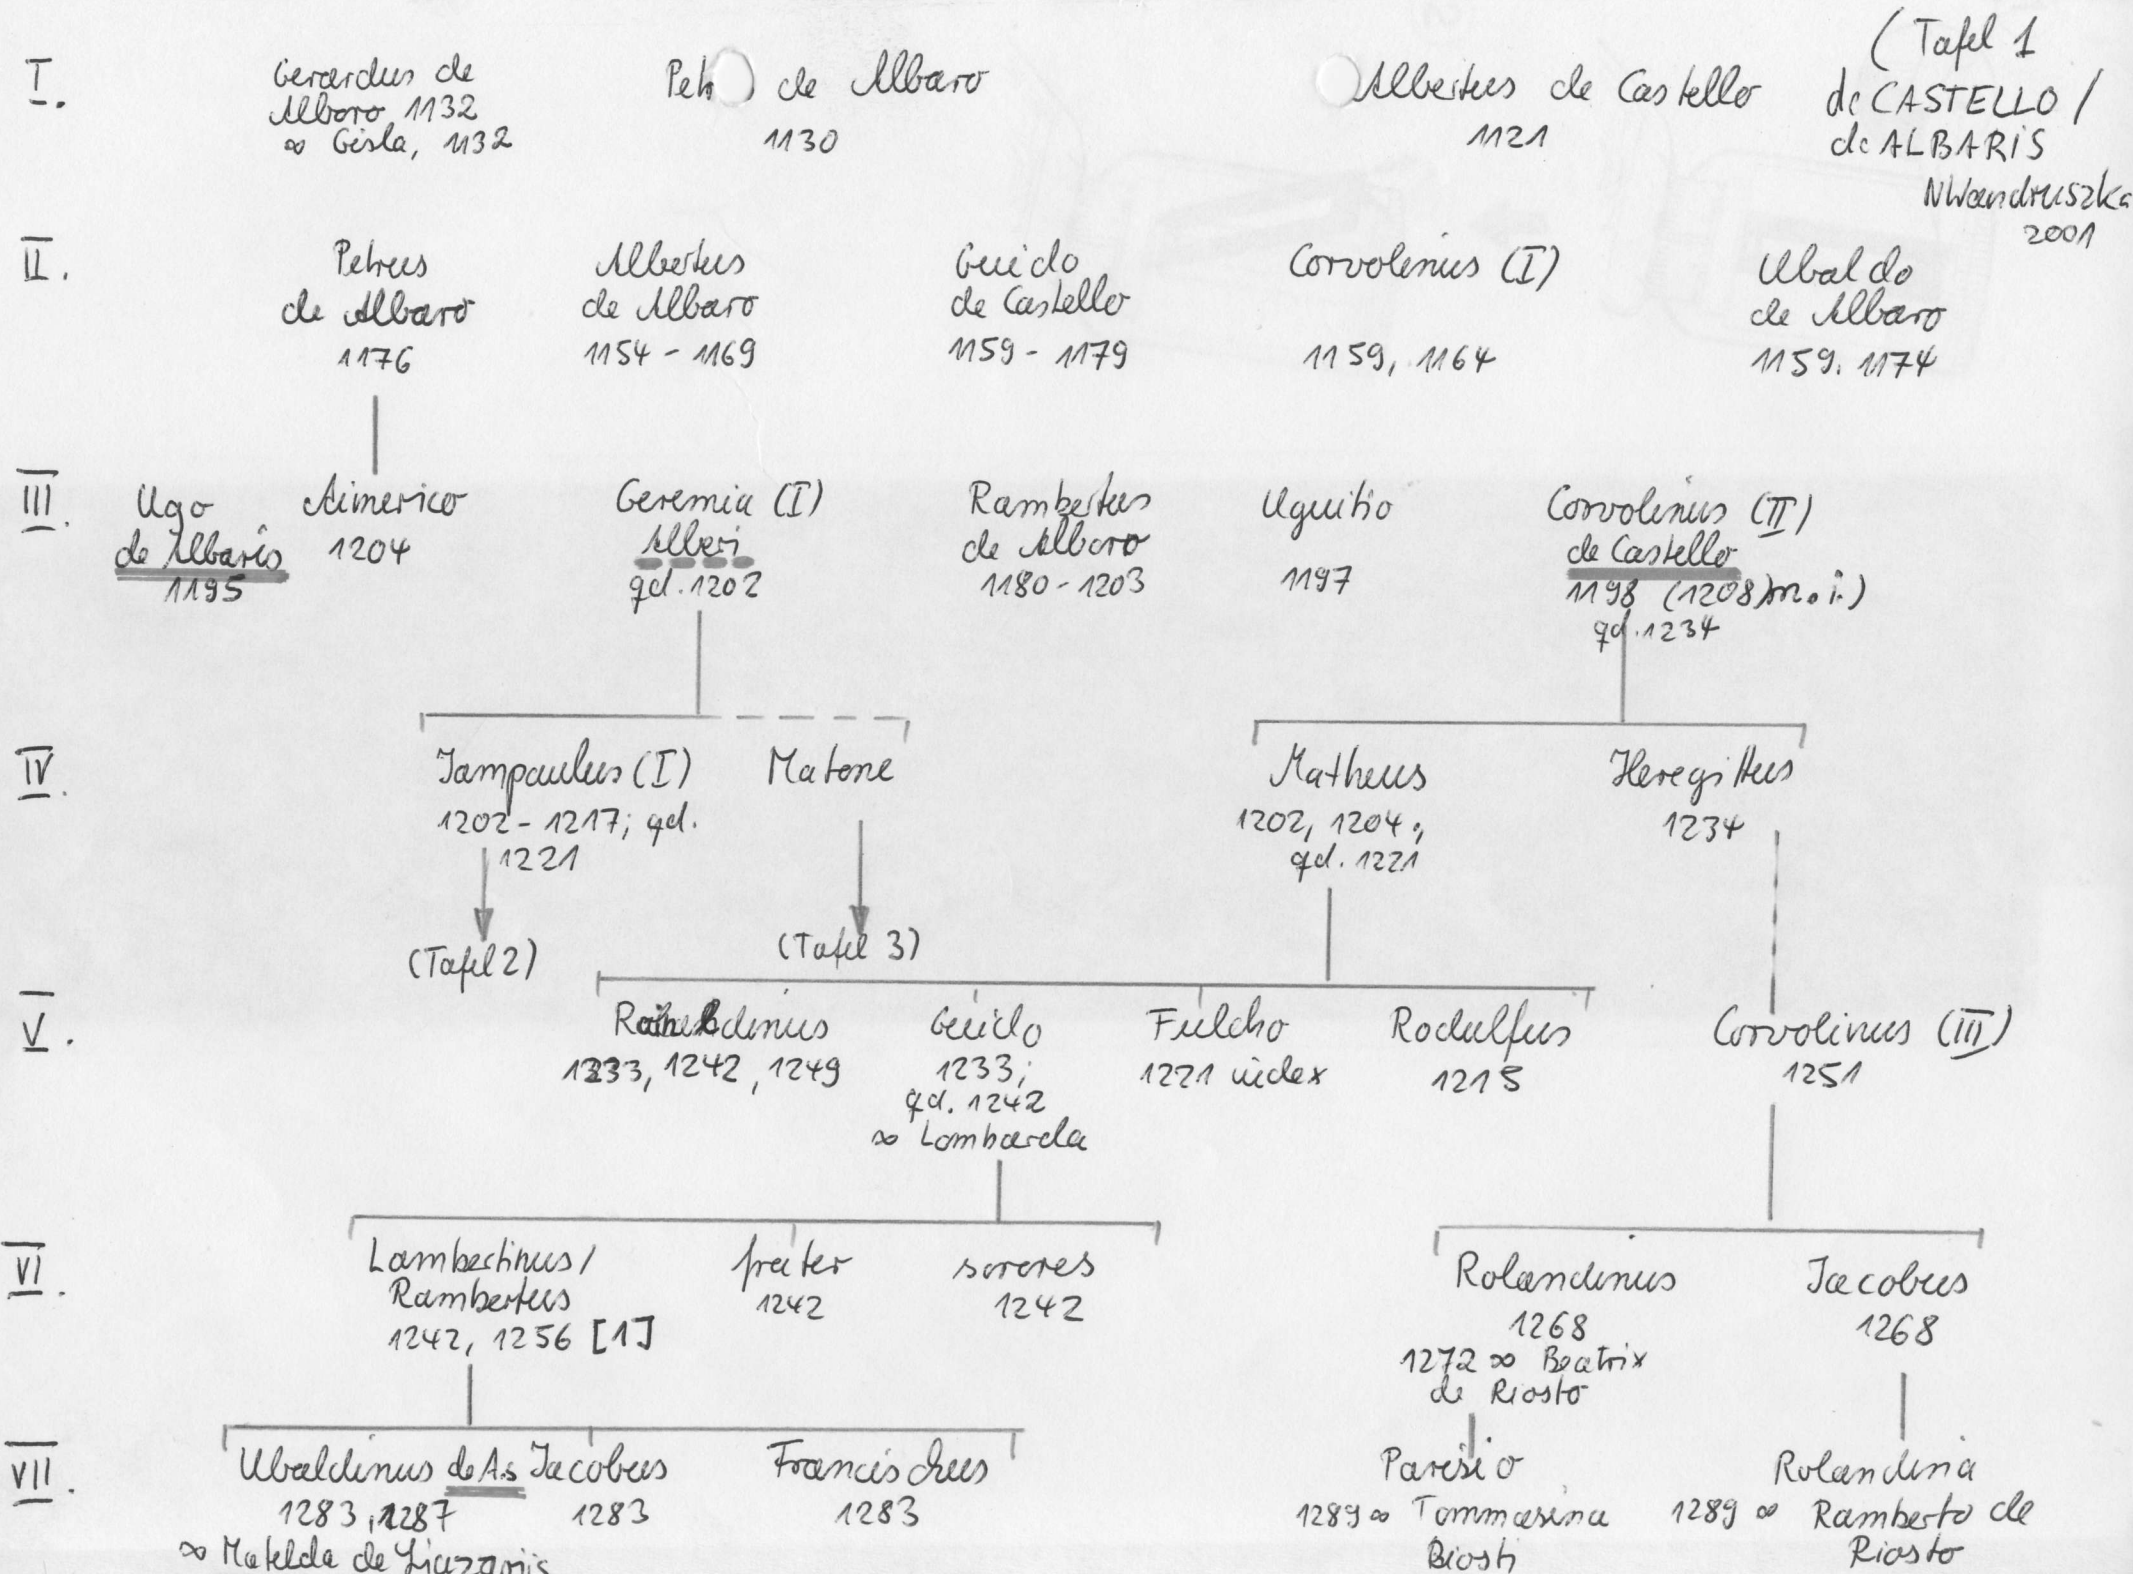 I.
Gerardus de
Alboro 1132
∞ Gisla, 1132
Pet de Albaro
1130
Albertus de Castello
1121
(Tafel 1
de CASTELLO /
de ALBARIS
NWandruszka
2001
II.
Petrus
de Albaro
1176
Albertus
de Albaro
1154 - 1169
Guido
de Castello
1159 - 1179
Corvolinus (I)
1159, 1164
Ubaldo
de Albaro
1159. 1174
III.
Ugo
de Albaris
1195
Aimerico
1204
Geremia (I)
Alberi
qd. 1202
Rambertus
de Alboro
1180 - 1203
Uguitio
1197
Corvolinus (II)
de Castello
1198 (1208) m. i.)
qd. 1234
IV.
Jampaulus (I)
1202 - 1217; qd.
1221
(Tafel 2)
Matone
(Tafel 3)
Matheus
1202, 1204;
qd. 1221
Heregittus
1234
V.
1233, 1242, 1249
Guido
1233;
qd. 1242
∞ Lombarda
Fulcho
1221 iudex
Rodulfus
1215
Corvolinus (III)
1251
VI.
Lambertinus /
Rambertus
1242, 1256 [1]
frater
1242
sorores
1242
Rolandinus
1268
1272 ∞ Beatrix
de Riosto
Jacobus
1268
VII.
Ubaldinus de A.s
1283, 1287
∞ Matelda de
Jacobus
1283
Francischus
1283
Parisio
1289 ∞ Tommasina
Riosti
Rolandina
1289 ∞ Ramberto de
Riosto